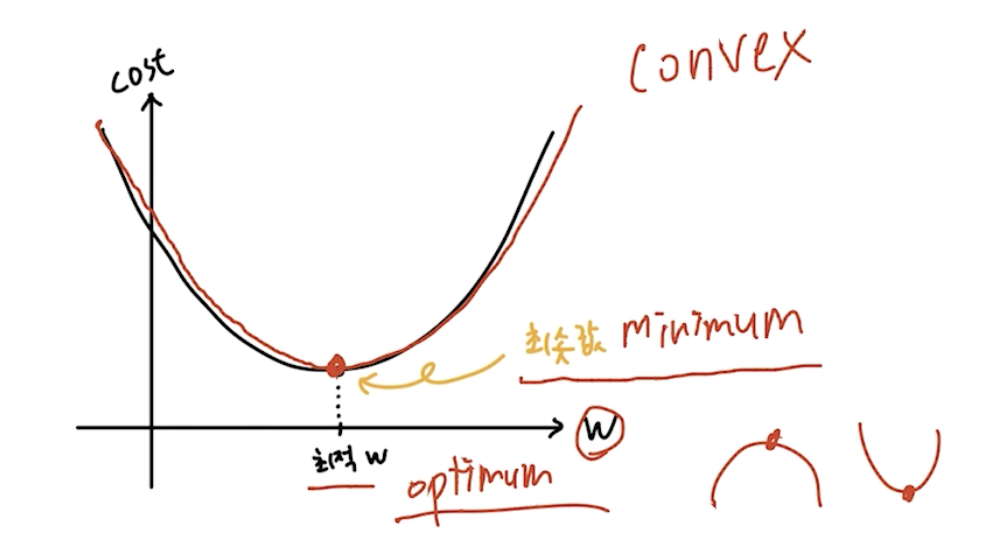 cost
convex
최솟값 minimum
W
최적 W
optimum